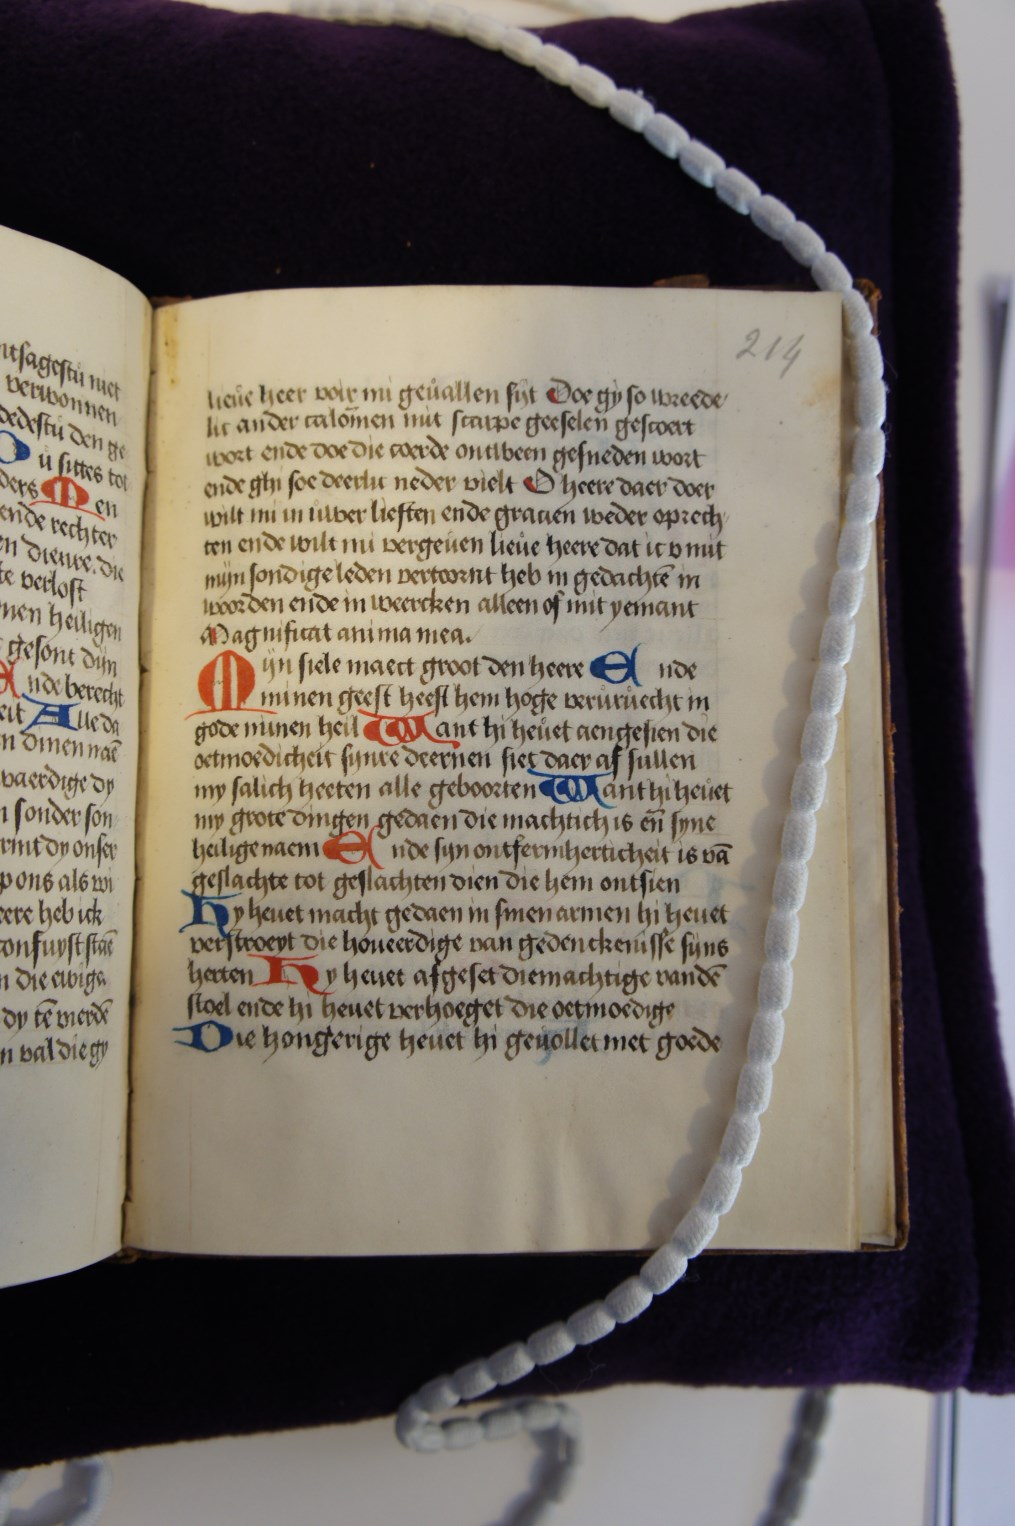 ntsagestu niet
verwonnen
dedestu den ge
Du sittes tot
ders Men
ende rechter
en dienre. die
te verlost
nen heiligen
gesont dijn
Ende berecht
eit Alle da
n dinen naē
waerdige dy
n sonder son
rmt dy onser
p ons als wi
eere heb ick
confuyst staē
n die ewige
dy tē vierdē
n val die gy
214
lieue heer voir mi geuallen sijt Doe gy so wreede
lic ander calōmen mit scarpe geeselen gescoert
wort ende doe die coerde ontween gesneden wort
ende ghi soe deerlic neder vielt O heere daer doer
wilt mi in uwer lieften ende gracien weder oprech
ten ende wilt mi vergeuen lieue heere dat ic v mit
mijn sondige leden vertoornt heb in gedachtē in
woorden ende in weercken alleen of mit yemant
Magnificat anima mea.
Mijn siele maect groot den heere Ende
minen geest heeft hem hoge veruruecht in
gode minen heil Want hi heuet aengesien die
oetmoedicheit synre deernen siet daer af sullen
my salich heeten alle geboorten Want hi heuet
my grote dingen gedaen die machtich is eñ syne
heilige naem Ende sijn ontfermherticheit is vā
geslachte tot geslachten dien die hem ontsien
Hy heuet macht gedaen in sinen armen hi heuet
verstroeyt die houeerdige van gedenckenisse sijns
herten Hy heuet afgeset die machtige vandē
stoel ende hi heuet verhoeget die oetmoedige
Die hongerige heuet hi geuollet met goede